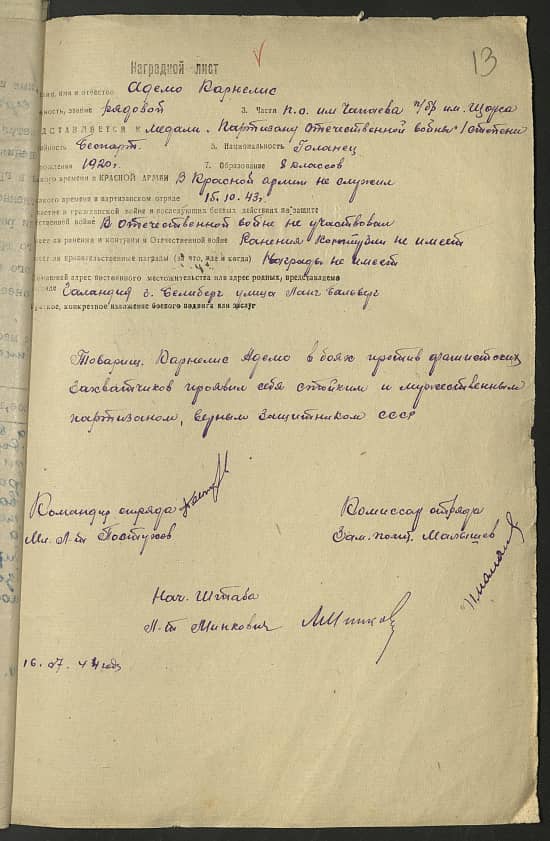 13
Наградной лист
имя и отчество Адемо Карнелис
звание рядовой 3. Часть п.о. им Чапаева п/бр им. Щорса
ПРЕДСТАВЛЯЕТСЯ К медали "Партизану Отечественной войны" I степени
беспарт. 5. Национальность Голанец
рождения 1920г. 7. Образование 8 классов
какого времени в КРАСНОЙ АРМИИ В Красной армии не служил
какого времени в партизанском отряде 15.10.43г.
участие в гражданской войне и последующих боевых действиях по защите
Отечественной войне В Отечественной войне не участвовал
ли ранения и контузии в Отечественной войне Ранения Контузии не имеет
ли правительственные награды (за что, где и когда) Награды не имеет
адрес постоянного местожительства или адрес родных, представляемого
Заландия г. Семберг улица Ланг
краткое, конкретное изложение боевого подвига или заслуг
Товарищ. Карнелис Адемо в боях против фашистских
захватчиков проявил себя стойким и мужественным
партизаном, верным защитником СССР
Командир отряда
Мл. Л-т Постухов
Комиссар отряда
Зам. полит. Малышев
Нач. Штаба
Л-т Минкович
16.07.44 год